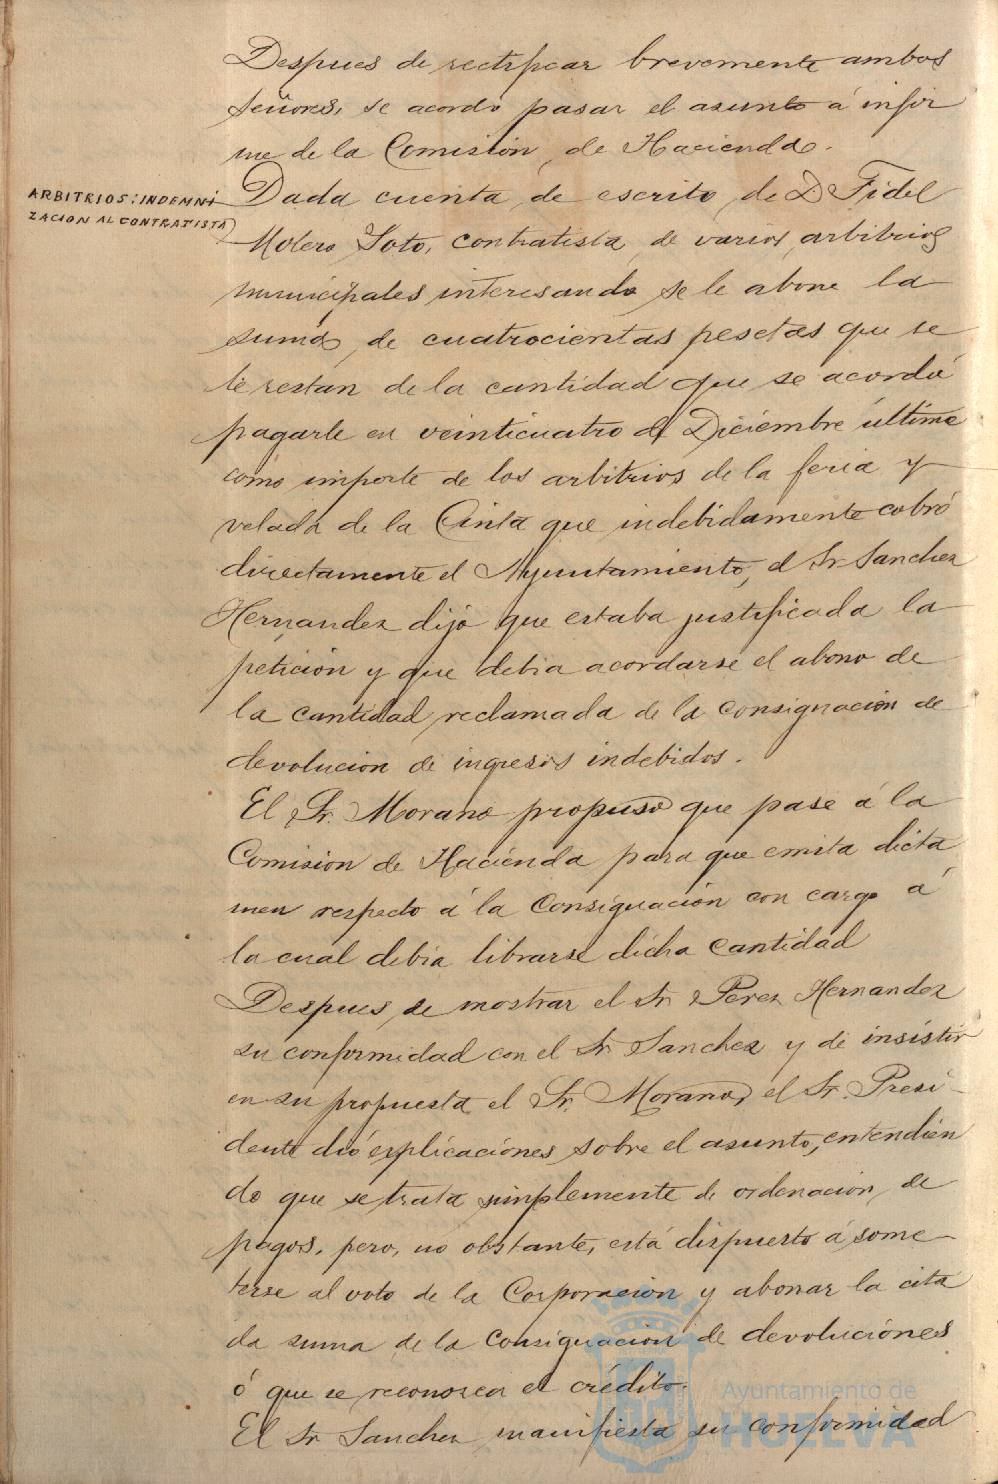 Despues de rectificar brevemente ambos
señores, se acordó pasar el asunto á infor
me de la Comision de Hacienda.
ARBITRIOS: INDEMNI
ZACION AL CONTRATISTA
Dada cuenta de escrito de D. Fidel
Molero Soto, contratista de varios arbitrios
municipales interesando se le abone la
suma de cuatrocientas pesetas que se
le restan de la cantidad que se acordó
pagarle en veinticuatro de Diciembre último
como importe de los arbitrios de la feria y
velada de la Cinta que indebidamente cobró
directamente el Ayuntamiento, el Sr. Sanchez
Hernandez dijo que estaba justificada la
petición y que debia acordarse el abono de
la cantidad reclamada de la consignación de
devolucion de ingresos indebidos.
El Sr. Morano propuso que pase á la
Comision de Hacienda para que emita dicta
men respecto á la Consignación con cargo á
la cual debia librarse dicha cantidad
Despues de mostrar el Sr. Perez Hernandez
su conformidad con el Sr. Sanchez y de insistir
en su propuesta el Sr. Morano, el Sr. Presi-
dente dió explicaciónes sobre el asunto, entendien
do que se trata simplemente de ordenación de
pagos, pero, no obstante, está dispuesto á some-
terse al voto de la Corporación y abonar la cita
da suma de la Consignación de devoluciónes
ó que se reconozca el crédito.
El Sr. Sanchez manifiesta su conformidad
Ayuntamiento de
HUELVA